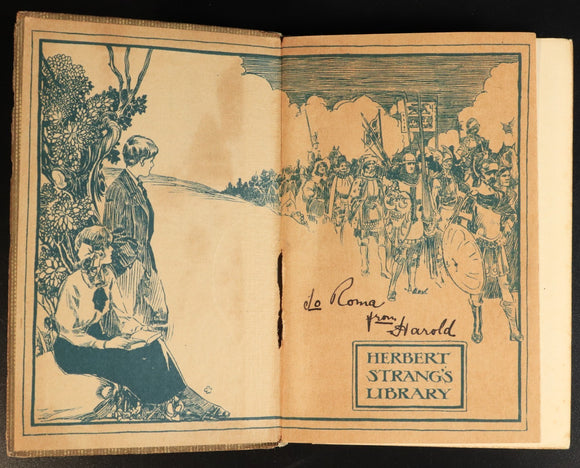 To Roma
from Harold
HERBERT
STRANG'S
LIBRARY